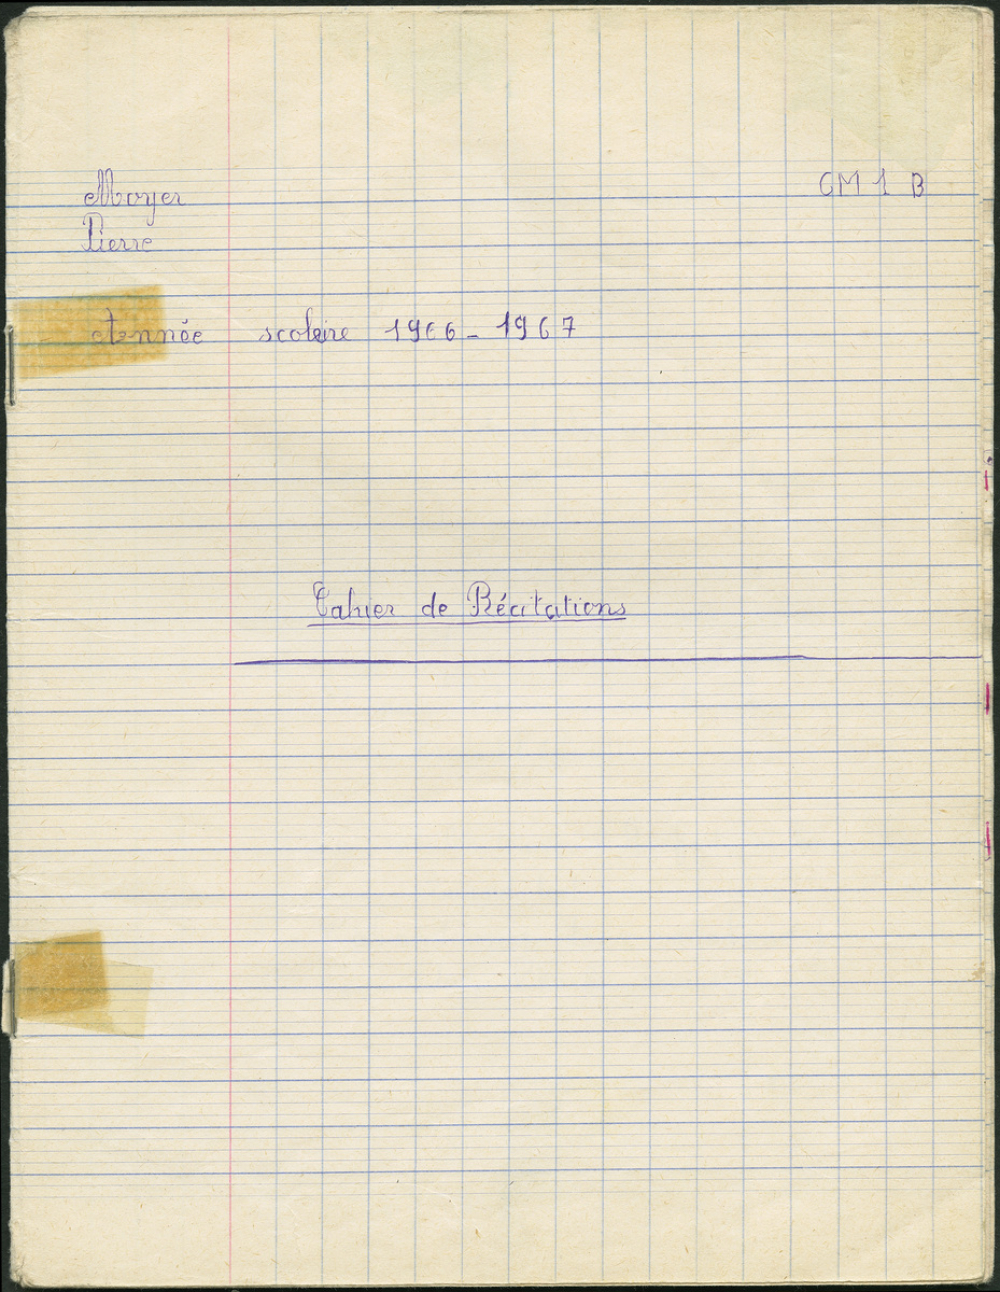 Moyer
CM 1 B
Pierre
Année scolaire 1966-1967
Cahier de Récitations